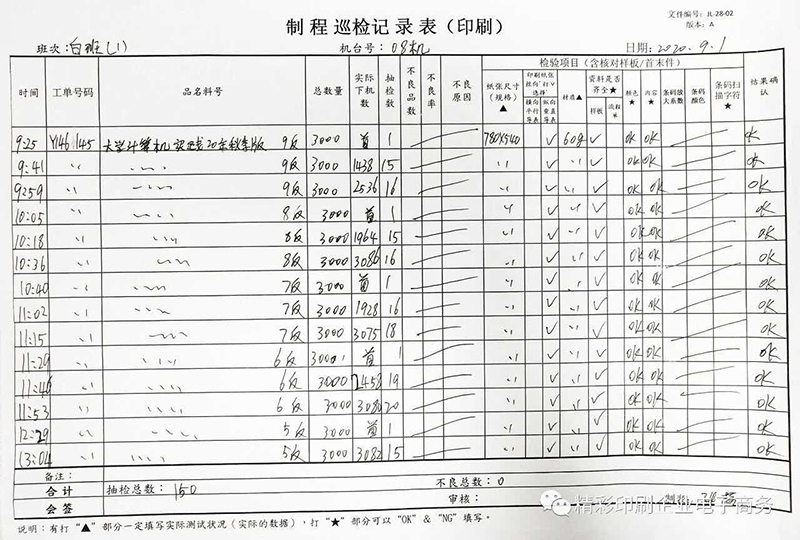 文件编号：JL-28-02
版本：A
制程巡检记录表（印刷）
班次：白班(1) 机台号：08机 日期：2020.9.1
时间 工单号码 产品名料号 总数量 实际下机数 抽检数 不良品数 不良率 不良原因 检验项目（含核对样板/首末件） 结果确认
纸张尺寸（规格）▲ 印刷纸张丝向"打∨选择" 横向平行导表 纵向垂直导表 材质▲ 资料是否齐全★ 样板 流程单 颜色★ 内容★ 条码放大系数 条码颜色 条码扫描字符★
9:25 Y146145 大学计算机 20东秋季版 9反 3000 首 1 780X540 ∨ 60g ∨ OK OK OK
9:41 〃 〃 9反 3000 1438 15 〃 ∨ 〃 ∨ OK OK OK
9:59 〃 〃 9反 3000 2536 16 〃 ∨ 〃 ∨ OK OK OK
10:05 〃 〃 8反 3000 首 1 〃 ∨ 〃 ∨ OK OK OK
10:18 〃 〃 8反 3000 1964 15 〃 ∨ 〃 ∨ OK OK OK
10:36 〃 〃 8反 3000 3086 16 〃 ∨ 〃 ∨ OK OK OK
10:40 〃 〃 7反 3000 首 1 〃 ∨ 〃 ∨ OK OK OK
11:02 〃 〃 7反 3000 1928 16 〃 ∨ 〃 ∨ OK OK OK
11:15 〃 〃 7反 3000 3075 18 〃 ∨ 〃 ∨ OK OK OK
11:29 〃 〃 6反 3000 首 1 〃 ∨ 〃 ∨ OK OK OK
11:46 〃 〃 6反 3000 2458 19 〃 ∨ 〃 ∨ OK OK OK
11:53 〃 〃 6反 3000 3080 20 〃 ∨ 〃 ∨ OK OK OK
12:29 〃 〃 5反 3000 首 1 〃 ∨ 〃 ∨ OK OK OK
13:04 〃 〃 5反 3000 3082 15 〃 ∨ 〃 ∨ OK OK OK
备注：
合计 抽检总数：150 不良总数：0
会签 审核： 制表：
精彩印刷企业电子商务
说明：有打"▲"部分一定填写实际测试状况（实际的数据），打"★"部分可以"OK"&"NG"填写。